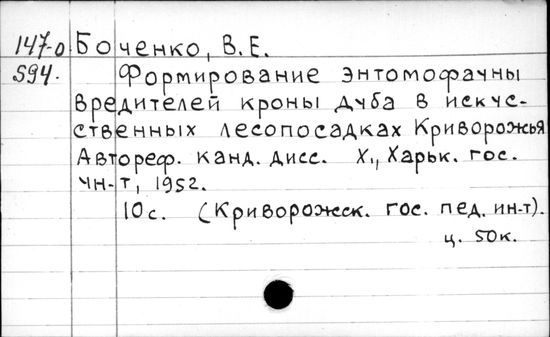 147-0 Боченко, В.Е.
594. Формирование энтомофауны
вредителей кроны дуба в искус-
ственных лесопосадках Криворожья
Автореф. канд. дисс. Х., Харьк. гос.
ун-т, 1952.
10с. (Криворожск. гос. пед. ин-т).
ц. 50к.